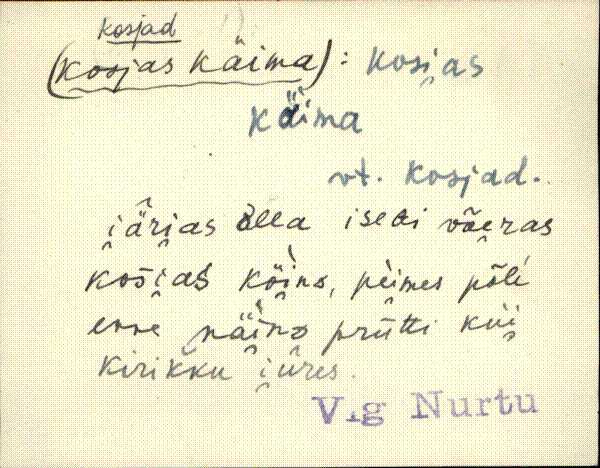 kosjad
(kosjas käima): kosi̯as
käima
vt. kosjad.
i̯äri̯as õlla iseäi võe̯ras
kosi̯as köi̯nᴅ, pe̯imes põli
enne näi̯nᴅ prütti kui̯
kirikku i̯üres.
V.g Nurtu